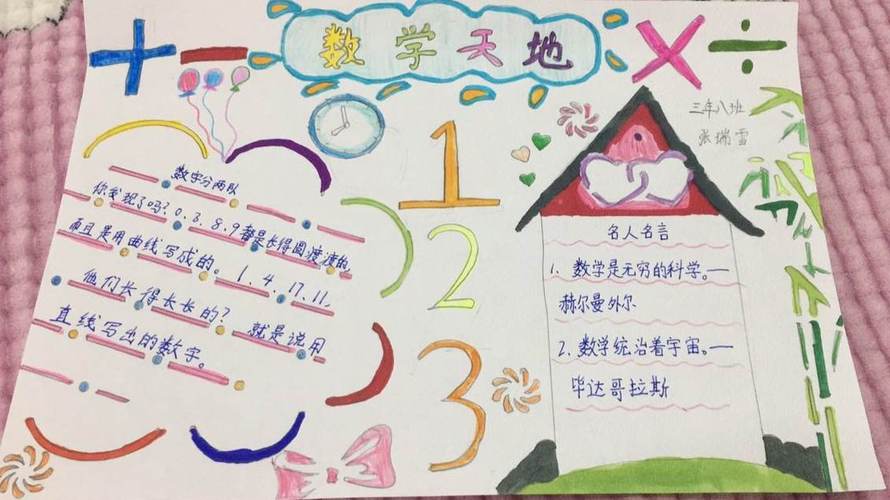 + − 数学天地 × ÷
三年八班
张瑞雪
数字分两队
你发现了吗?0.3.8.9都是长得圆渡渡的,
而且是用曲线写成的。1.4.17.11,
他们长得长长的?就是说用
直线写出的数字。
1
2
3
名人名言
1、数学是无穷的科学。—
赫尔曼外尔
2、数学统治着宇宙。—
毕达哥拉斯